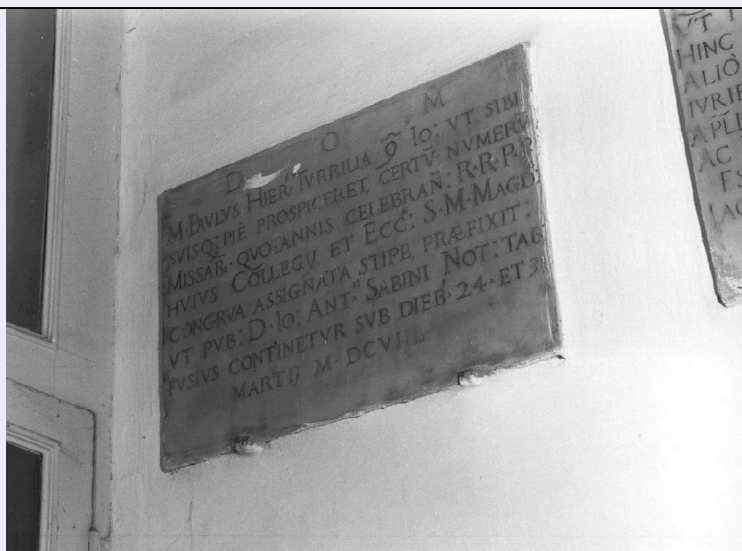 D O M
M. PAVLVS HIER. TVRRILIA Io: VT SIBI
SVISQ; PIE PROSPICERET, CERTV̄. NVMERV̄
MISSAR. QVOTANNIS CELEBRAN̄. R.R.P.P.
HVIVS COLLEGIJ ET ECC. S. M. MAGD.
CONGRVA ASSIGNATA STIPE, PRÆFIXIT.
VT PVB: D. Io: ANT. SABINI NOT: TAB
FVSIVS CONTINETVR SVB DIEB. 24. ET
MARTIJ M. DCVIII.
VT
HINC
ALIÒ
IVRIE
APLI
AC
ES